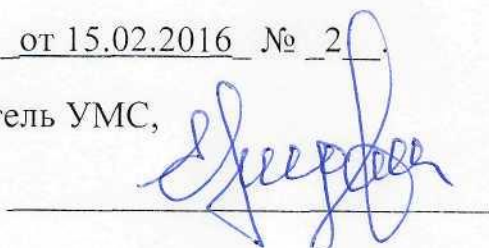 от 15.02.2016 № 2 .
тель УМС,